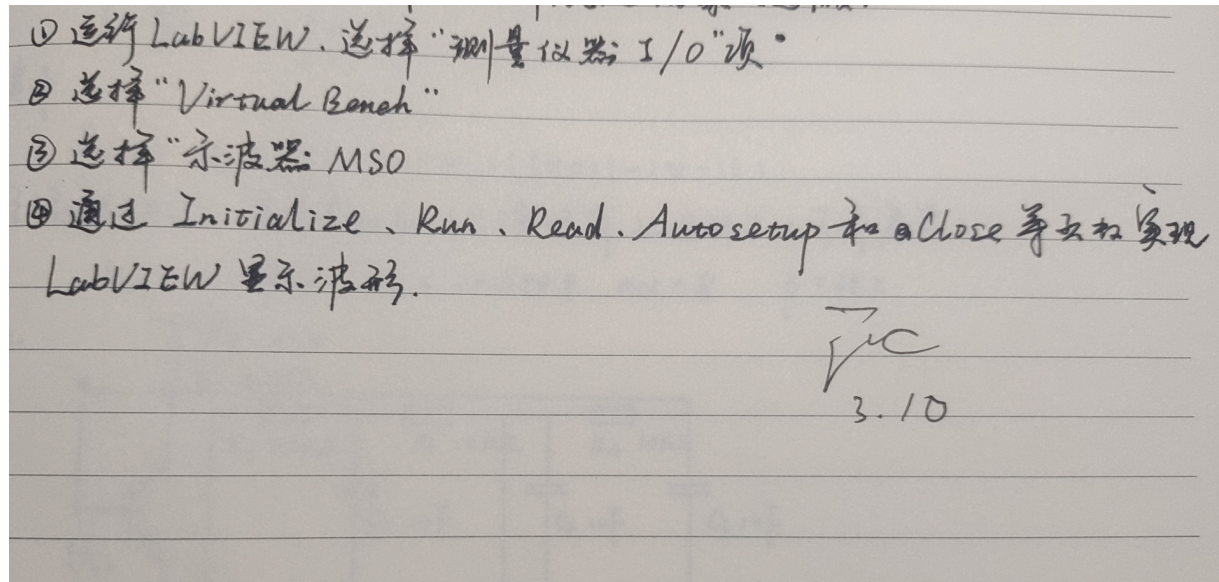 ①运行LabVIEW、选择“测量仪器I/O”项
②选择“Virtual Bench”
③选择“示波器MSO
④通过Initialize、Run、Read、Autosetup和Close等实现
LabVIEW显示波形.
3.10